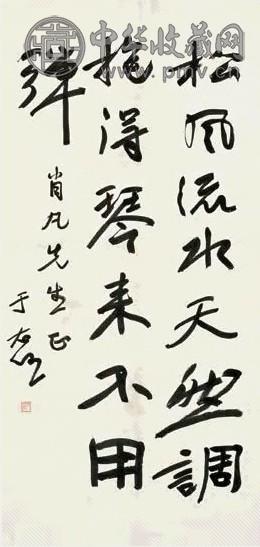 松風流水天然調
抱得琴来不用
弹
肖凡先生正
于右任
中华收藏网
www.pmv.cn